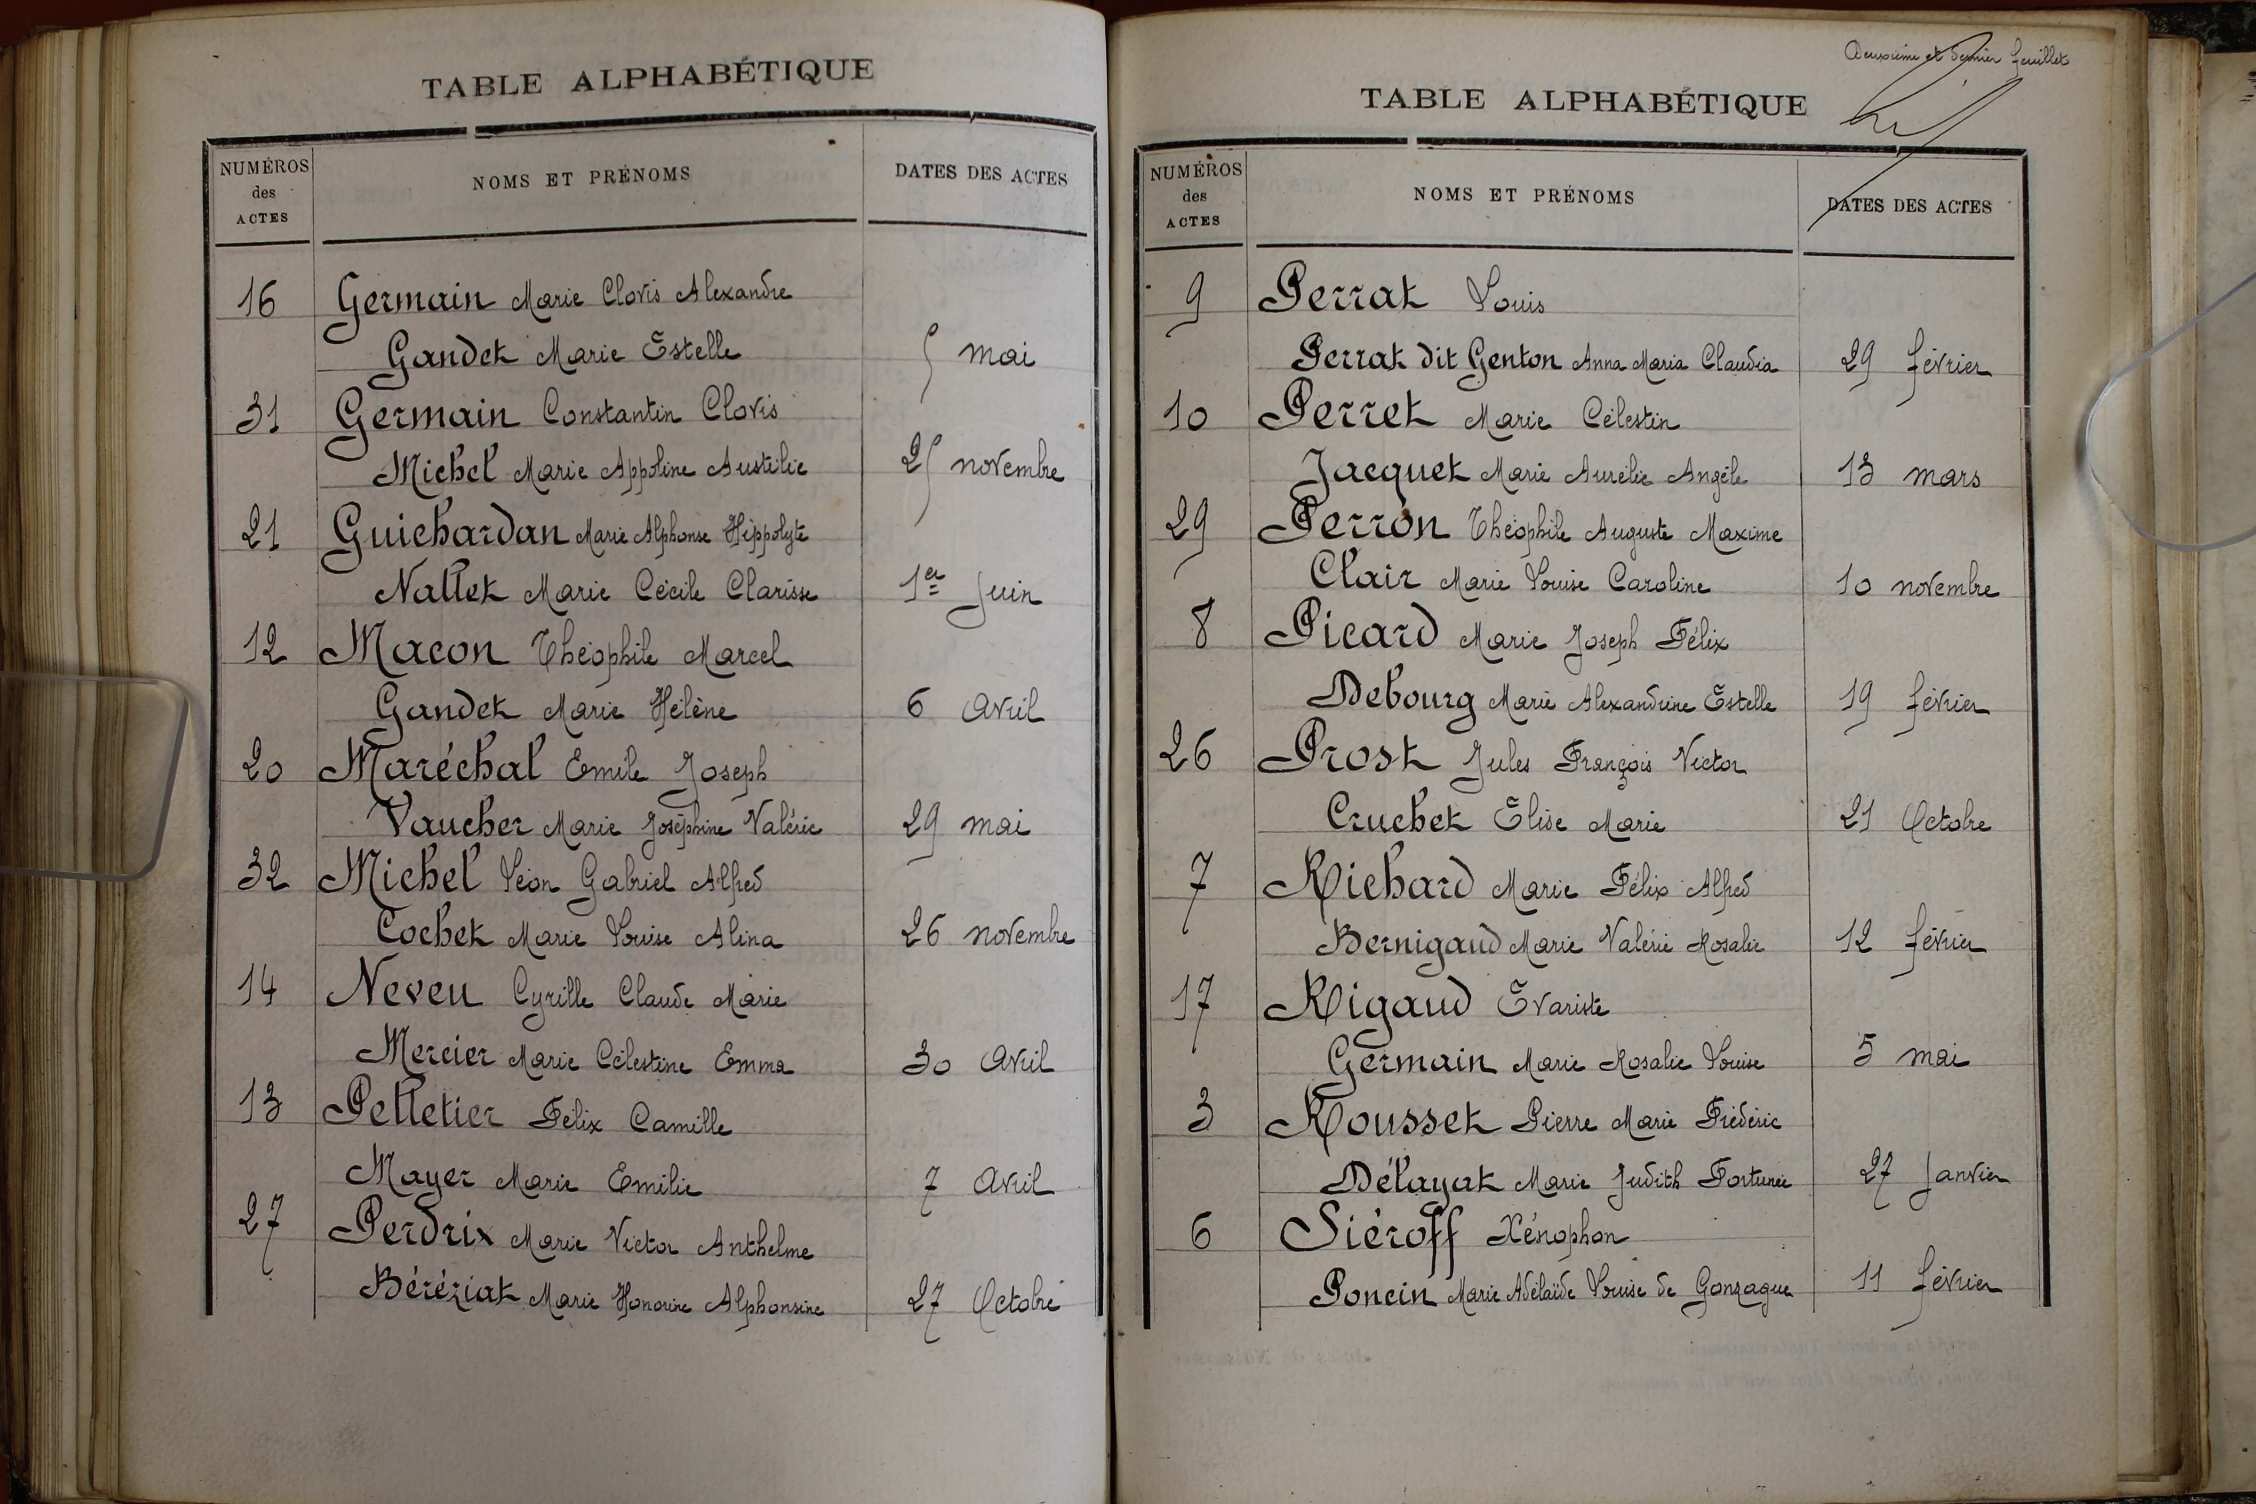 TABLE ALPHABÉTIQUE
NUMÉROS des ACTES
NOMS ET PRÉNOMS
DATES DES ACTES
16 Germain Marie Clovis Alexandre
Gandet Marie Estelle 5 mai
31 Germain Constantin Clovis
Michel Marie Appoline Austilie 25 novembre
21 Guichardan Marie Alphonse Hippolyte
Nallet Marie Cécile Clarisse 1er Juin
12 Macon Théophile Marcel
Gandet Marie Hélène 6 Avril
20 Maréchal Emile Joseph
Vaucher Marie Joséphine Valérie 29 mai
32 Michel Léon Gabriel Alfred
Cochet Marie Louise Alina 26 novembre
14 Neveu Cyrille Claude Marie
Mercier Marie Célestine Emma 30 Avril
13 Pelletier Félix Camille
Mayer Marie Emilie 7 Avril
27 Perdrix Marie Victor Anthelme
Béréziat Marie Honorine Alphonsine 27 Octobre
Deuxième et dernier feuillet
TABLE ALPHABÉTIQUE
NUMÉROS des ACTES
NOMS ET PRÉNOMS
DATES DES ACTES
9 Perrat Louis
Perrat dit Genton Anna Maria Claudia 29 février
10 Perret Marie Célestin
Jacquet Marie Aurélie Angèle 13 mars
29 Perron Théophile Auguste Maxime
Clair Marie Louise Caroline 10 novembre
8 Picard Marie Joseph Félix
Debourg Marie Alexandrine Estelle 19 février
26 Prost Jules François Victor
Cruchet Elise Marie 21 Octobre
7 Richard Marie Félix Alfred
Bernigaud Marie Valérie Rosalie 12 février
17 Rigaud Evariste
Germain Marie Rosalie Louise 5 mai
3 Rousset Pierre Marie Frédéric
Délayat Marie Judith Fortunée 27 Janvier
6 Siéroff Xénophon
Poncin Marie Adélaïde Louise de Gonzague 11 février